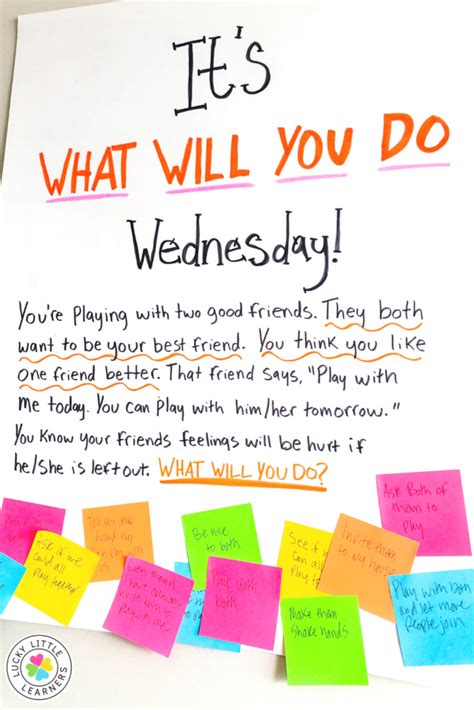 It's
WHAT WILL YOU DO
Wednesday!
You're playing with two good friends. They both
want to be your best friend. You think you like
one friend better. That friend says, "Play with
me today. You can play with him/her tomorrow."
You know your friends feelings will be hurt if
he/she is left out. WHAT WILL YOU DO?
Ask Both of
them to
play
Be nice
to both
Invite them
to my house
Ask if we
could all
play together
See if
can
all
Play with
both
Play with both
and let more
People join
Make them
shake hands
LUCKY LITTLE
LEARNERS